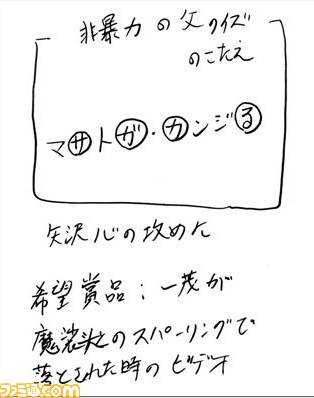 非暴力の父クイズ
のこたえ
マサトガ・カンジる
矢沢心の攻めた
希望賞品；一茂が
魔裟斗とのスパーリングで
落とされた時のビデオ
ファミ通.com